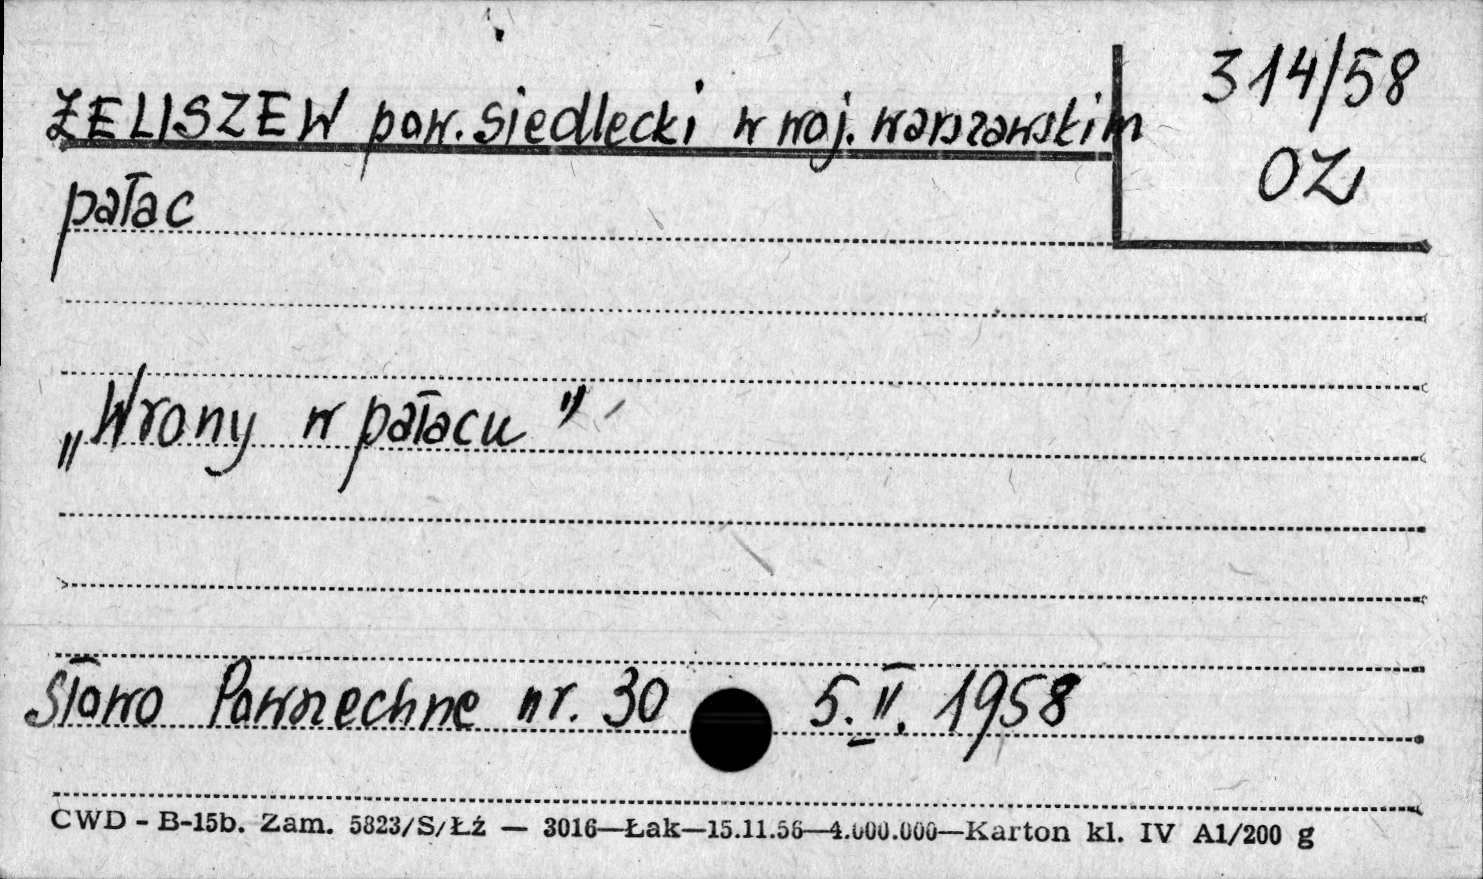 ŻELISZEW pow. siedlecki w woj. warszawskim
314/58
OZ
pałac
„Wrony w pałacu"
Słowo Powszechne nr. 30 5. II. 1958
CWD - B-15b. Zam. 5823/S/Łż — 3016—Łak—15.11.56—4.000.000—Karton kl. IV A1/200 g